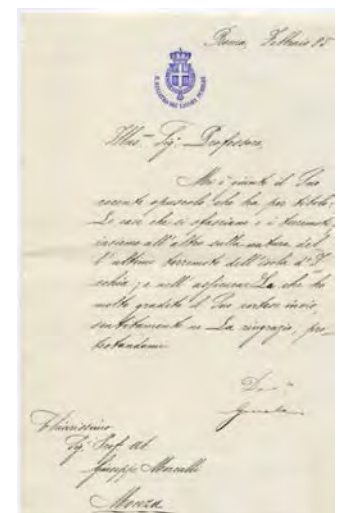 Roma, Febbraio 85
Illus.mo Sig. Professore,
Mi è giunto il Suo
recente opuscolo che ha per titolo:
Le case che si sfasciano e i terremoti,
insieme all'altro sulla natura del
l'ultimo terremoto dell'isola d'I
schia; e nell'assicurarLa che ho
molto gradito il Suo cortese invio,
sentitamente ne La ringrazio, pro
testandomi
Dev.mo
Genala
Chiarissimo
Sig. Prof. ab.
Giuseppe Mercalli
Monza